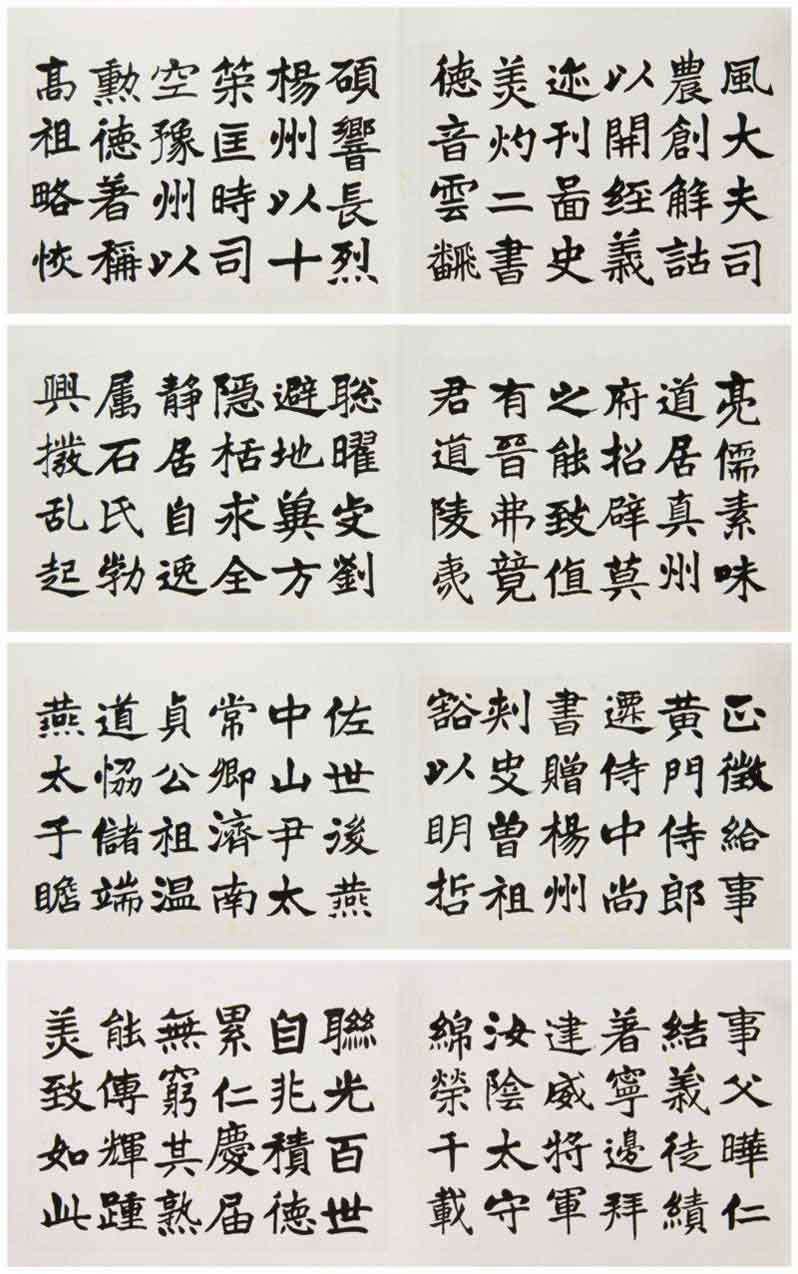 風大夫司
農創解詁
以開經義
迹刊啚史
美灼二書
徳音雲飜
碩響長烈
楊州以十
策匡時司
空豫州以
勳徳著稱
高祖略恢
亮儒素味
道居真州
府招辟莫
之能致值
有晉弗竟
君道陵夷
聡曜虔劉
避地兾方
隱栝求全
静居自逸
属石氏勃
興撥乱起
正徵給事
黄門侍郎
遷侍中尚
書贈楊州
刾史曾祖
豁以明哲
佐世後燕
中山尹太
常卿濟南
貞公祖温
道恊儲端
燕太子瞻
事父曄仁
結義徒績
著寧邊拜
建威將軍
汝陰太守
綿榮千載
聯光百世
自非積徳
累仁慶届
無窮其熟
能傳輝踵
美致如此